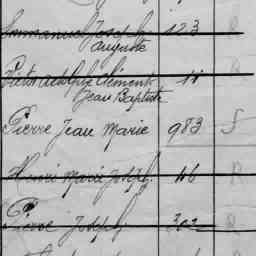 Emmanuel Joseph 123 R
Auguste
Victor Adolphe Clément 11
Jean Baptiste
Pierre Jean Marie 983 S
Henri Marie Joseph 46 R
Pierre Joseph 302 R